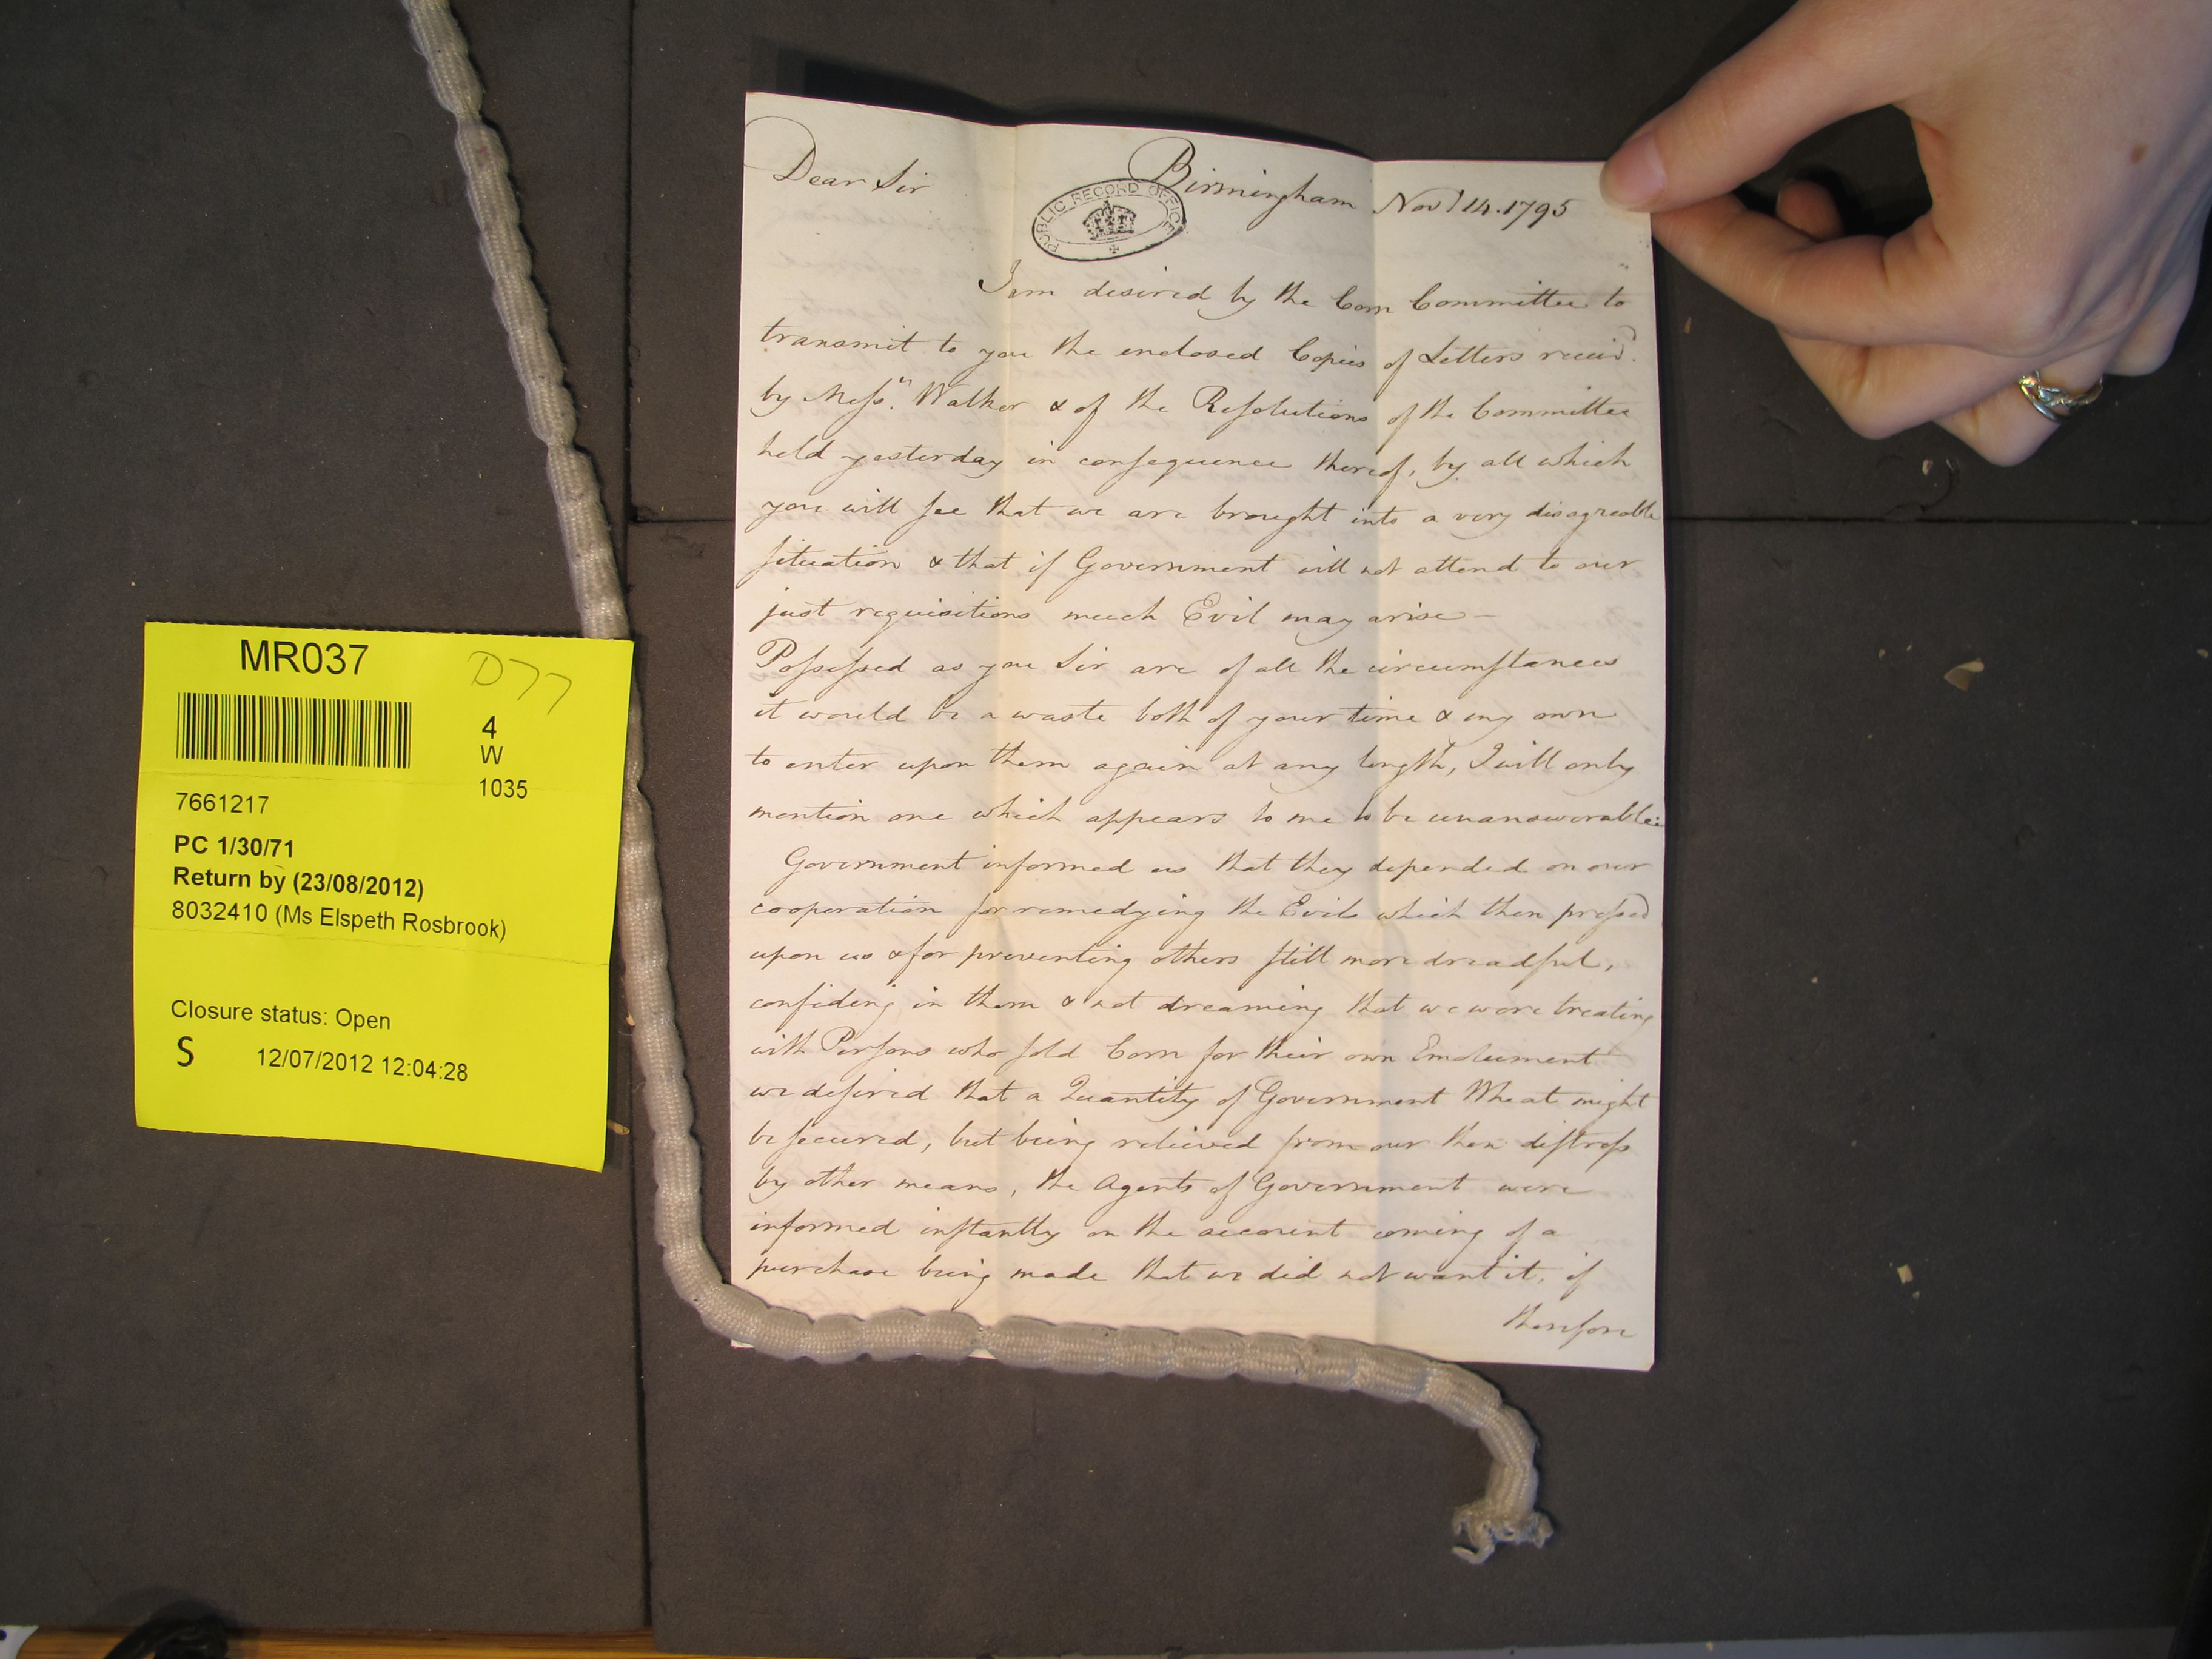 MR037
D77
4
W
1035
7661217
PC 1/30/71
Return by (23/08/2012)
8032410 (Ms Elspeth Rosbrook)
Closure status: Open
S 12/07/2012 12:04:28
Dear Sir Birmingham Nov 14. 1795
PUBLIC RECORD OFFICE
I am desired by the Corn Committee to
transmit to you the enclosed Copies of Letters receiv'd.
by Messrs. Walker & of the Resolutions of the Committee
held yesterday in consequence thereof, by all which
you will see that we are brought into a very disagreable
situation & that if Government will not attend to our
just requisitions much Evil may arise —
Possessed as you Sir are of all the circumstances
it would be a waste both of your time & my own
to enter upon them again at any length, I will only
mention one which appears to me to be unanswerable:
Government informed us that they depended on our
cooperation for remedying the Evils which then pressed
upon us & for preventing others still more dreadful,
confiding in them & not dreaming that we were treating
with Persons who sold Corn for their own Emolument
we desired that a Quantity of Government Wheat might
be secured, but being relieved from our then distress
by other means, the Agents of Government were
informed instantly on the account coming of a
purchase being made that we did not want it, if
therefore